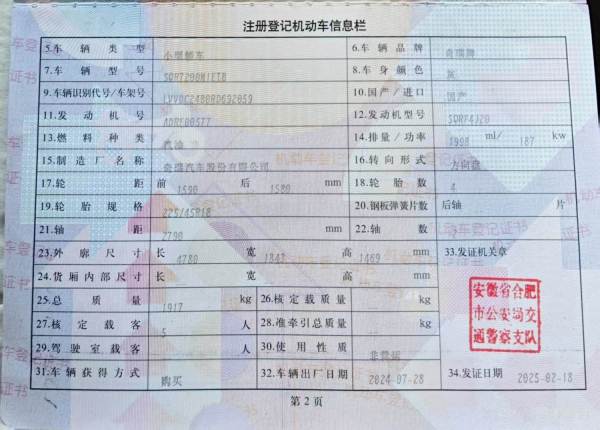 注册登记机动车信息栏
5.车辆类型 小型轿车 6.车辆品牌 奇瑞牌
7.车辆型号 8.车身颜色 灰
9.车辆识别代号/车架号 10.国产/进口 国产
11.发动机号 12.发动机型号 SQRF4J20
13.燃料种类 汽油 14.排量/功率 1998 ml/ 187 kw
15.制造厂名称 奇瑞汽车股份有限公司 16.转向形式 方向盘
17.轮距 前 1590 后 1580 mm 18.轮胎数 4
19.轮胎规格 225/45R18 20.钢板弹簧片数 后轴 片
21.轴距 2790 mm 22.轴数
23.外廓尺寸 长 4780 宽 1843 高 1469 mm 33.发证机关章
24.货厢内部尺寸 长 宽 高 mm
25.总质量 1917 kg 26.核定载质量 kg
27.核定载客 5 人 28.准牵引总质量 kg
29.驾驶室载客 人 30.使用性质 非营运
31.车辆获得方式 购买 32.车辆出厂日期 2024-07-28 34.发证日期 2025-02-18
安徽省合肥
市公安局交
通警察支队
第2页